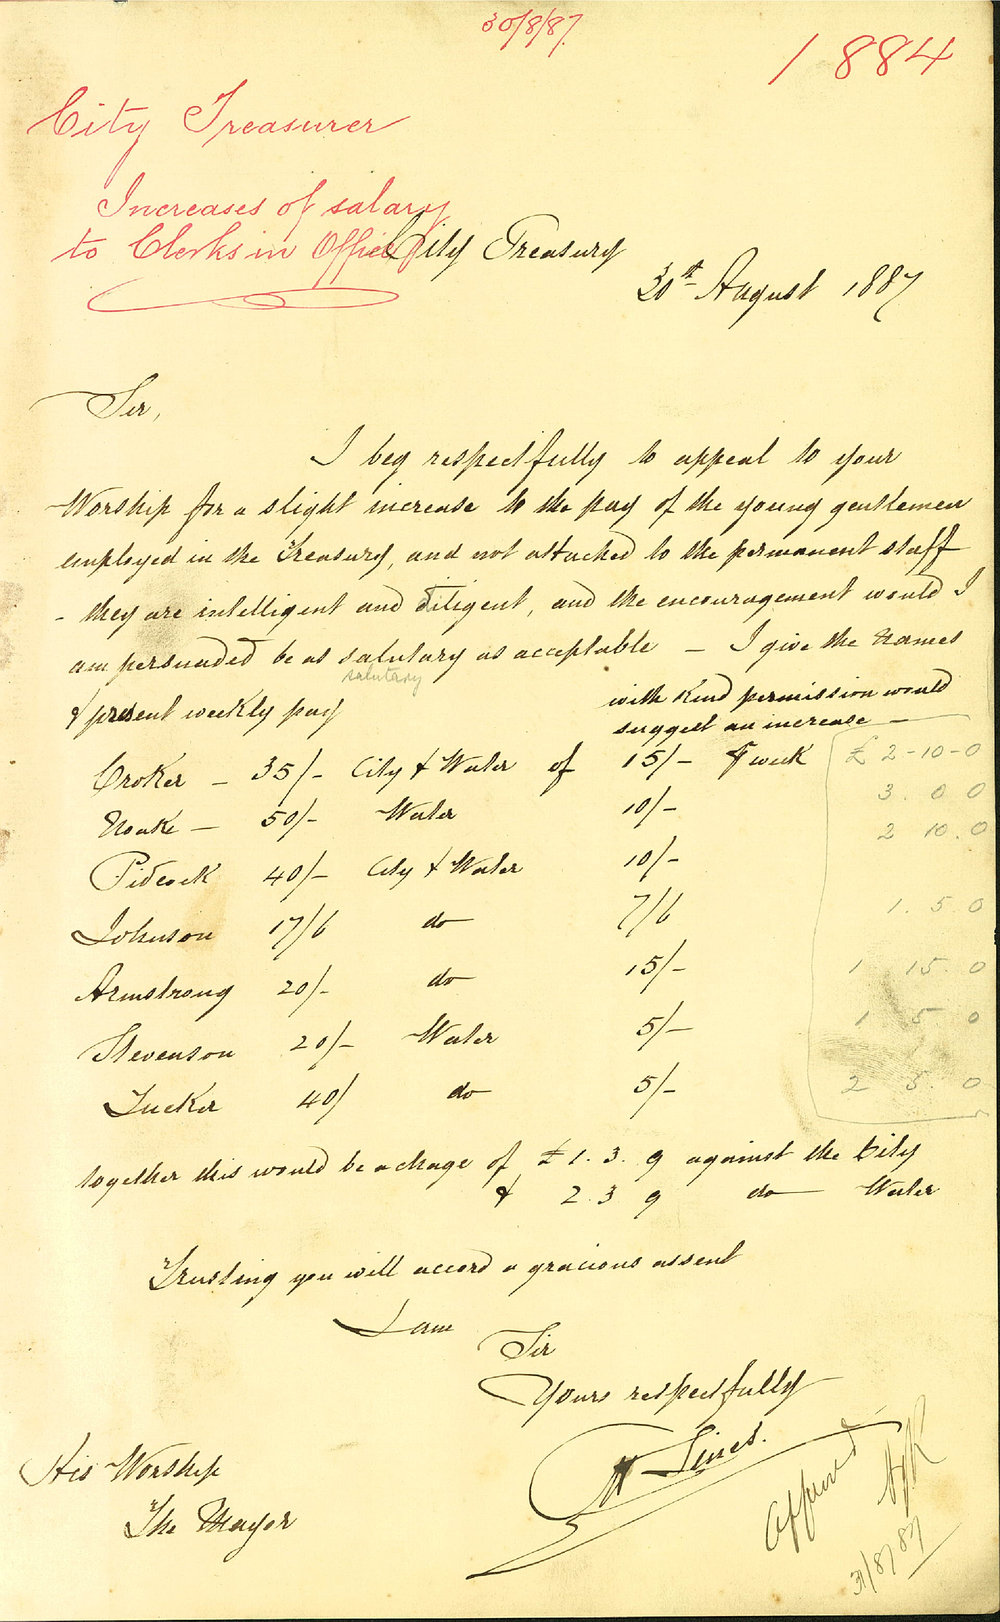 30/8/87.
1884
City Treasurer
Increases of salary
to Clerks in Office
City Treasury
30th August 1887
Sir,
I beg respectfully to appeal to your
Worship for a slight increase to the pay of the young gentlemen
employed in the Treasury, and not attached to the permanent staff
- they are intelligent and diligent, and the encouragement would I
am persuaded be as salutary as acceptable — I give the Names
salutary
& present weekly pay
with Kind permission would
suggest an increase —
Croker — 35/- City & Water of 15/- ⅌ week £ 2-10-0
Noake — 50/- Water 10/- 3. 0 0
Pidcock 40/- City & Water 10/- 2 10. 0
Johnson 17/6 do 7/6 1. 5. 0
Armstrong 20/- do 15/- 1 15. 0
Stevenson 20/- Water 5/- 1 5 0
Tucker 40/ do 5/- 2 5. 0
together this would be a chage of £1. 3. 9 against the City
& 2. 3 9 do — Water
Trusting you will accord a gracious assent
I am
Sir
Yours respectfully
Lines.
His Worship
The Mayor
Approved
31/8/87